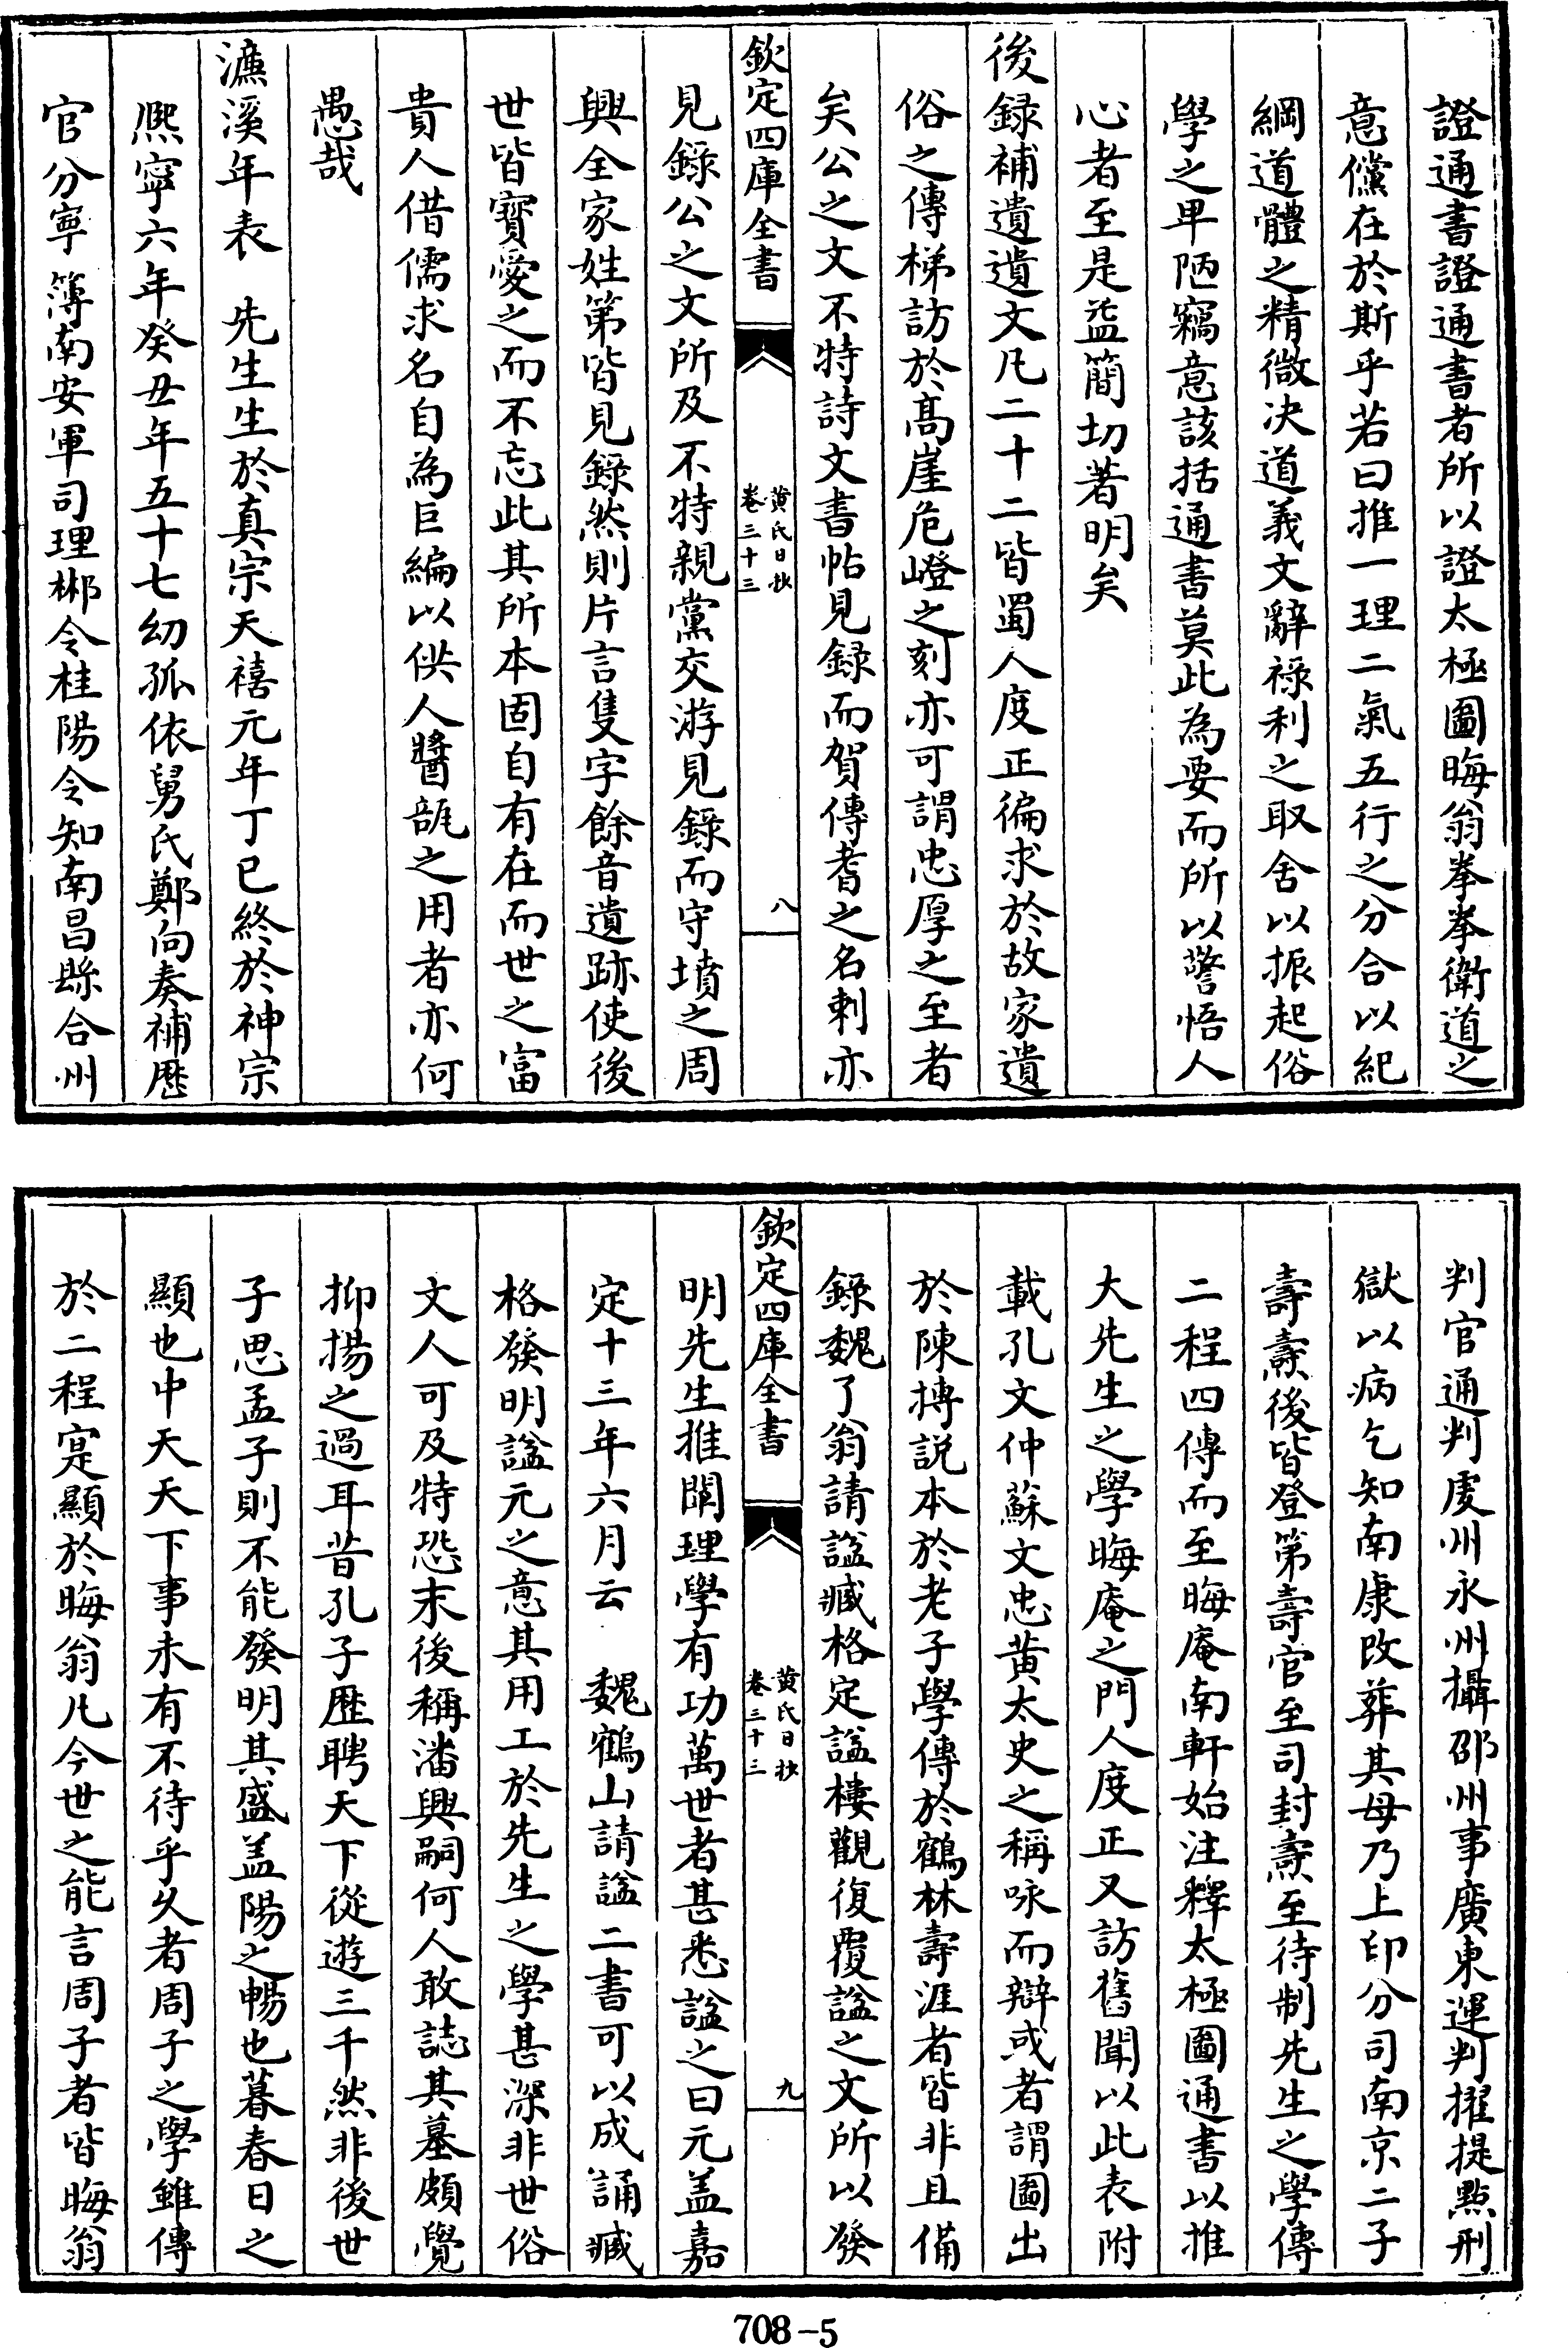 證通書證通書者所以證太極圖晦翁拳拳衛道之
意儻在於斯乎若曰推一理二氣五行之分合以紀
綱道體之精微決道義文辭祿利之取舍以振起俗
學之卑陋竊意該括通書莫此為要而所以警悟人
心者至是益簡切著明矣
後録補遺遺文凡二十二皆蜀人度正徧求於故家遺
俗之傳梯訪於髙崖危嶝之刻亦可謂忠厚之至者
矣公之文不特詩文書帖見録而賀傳耆之名刺亦
欽定四庫全書
黄氏日抄
卷三十三
八
見録公之文所及不特親黨交游見録而守墳之周
興全家姓第皆見録然則片言隻字餘音遺跡使後
世皆寶愛之而不忘此其所本固自有在而世之富
貴人借儒求名自為巨編以供人醬瓿之用者亦何
愚哉
濂溪年表　先生生於真宗天禧元年丁巳終於神宗
熙寧六年癸丑年五十七幼孤依舅氏鄭向奏補歴
官分寧簿南安軍司理郴令桂陽令知南昌縣合州
判官通判虔州永州攝邵州事廣東運判擢提㸃刑
獄以病乞知南康改葬其母乃上印分司南京二子
壽燾後皆登第壽官至司封燾至待制先生之學傳
二程四傳而至晦庵南軒始注釋太極圖通書以推
大先生之學晦庵之門人度正又訪舊聞以此表附
載孔文仲蘇文忠黄太史之稱咏而辯或者謂圖出
於陳摶説本於老子學傳於鶴林壽涯者皆非且備
録魏了翁請諡臧格定諡樓觀復覆諡之文所以發
欽定四庫全書
黄氏日抄
卷三十三
九
明先生推闡理學有功萬世者甚悉諡之曰元盖嘉
定十三年六月云　魏鶴山請諡二書可以成誦臧
格發明諡元之意其用工於先生之學甚深非世俗
文人可及特恐末後稱潘興嗣何人敢誌其墓頗覺
抑揚之過耳昔孔子歴聘天下從遊三千然非後世
子思孟子則不能發明其盛盖陽之暢也暮春日之
顯也中天天下事未有不待乎久者周子之學雖傳
於二程寔顯於晦翁凡今世之能言周子者皆晦翁
708-5